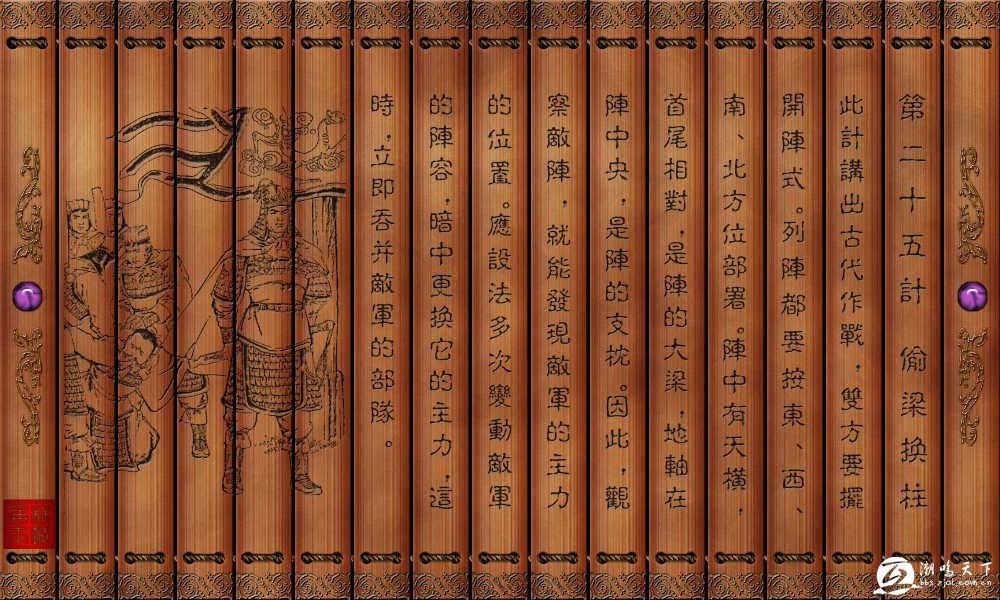 第二十五計 偷梁换柱
此計講出古代作戰，雙方要擺
開陣式。列陣都要按東、西、
南、北方位部署。陣中有天橫，
首尾相對，是陣的大梁，地軸在
陣中央，是陣的支枕。因此，觀
察敵陣，就能發現敵軍的主力
的位置。應設法多次變動敵軍
的陣容，暗中更换它的主力，這
時，立即吞并敵軍的部隊。
潮鸣天下
bbs.zjol.com.cn